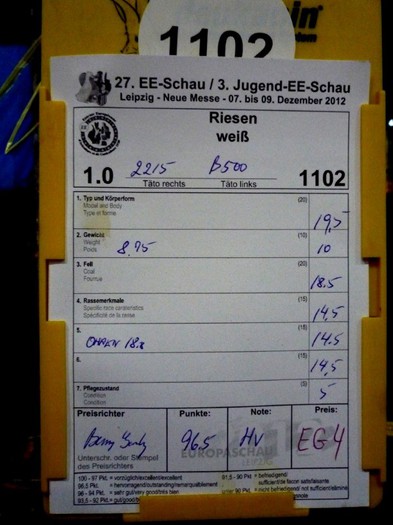 1102
27. EE-Schau / 3. Jugend-EE-Schau
Leipzig - Neue Messe - 07. bis 09. Dezember 2012
Riesen
weiß
1.0 2215 B500 1102
Täto rechts Täto links
1. Typ und Körperform (20) 19,5
Model and Body
Type et forme
2. Gewicht (10) 8.75 10
Weight
Poids
3. Fell (20) 18.5
Coat
Fourrure
4. Rassemerkmale (15) 14,5
5. (15) OHREN 18,8 14.5
6. (15) 14,5
7. Pflegezustand (5) 5
Condition
Condition
Preisrichter Punkte: Note: Preis:
96,5 HV EG4
Unterschr. oder Stempel
des Preisrichters
EUROPASCHAU
100 - 97 Pkt. = vorzüglich/excellent/excellent
96,5 Pkt. = hervorragend/outstanding/remarquablement
96 - 94 Pkt. = sehr gut/very good/très bien
93,5 - 92 Pkt. = gut/good/
91,5 - 90 Pkt. = befriedigend/